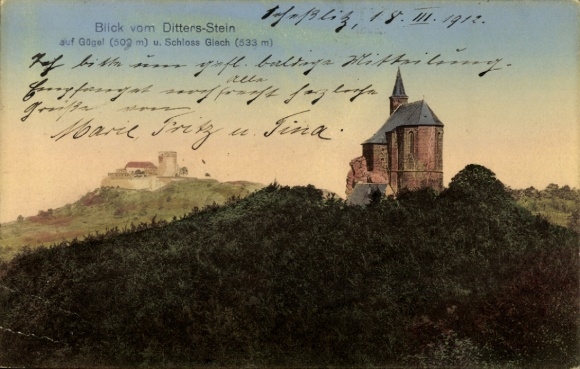 Blick vom Ditters-Stein
auf Gügel (509 m) u. Schloss Giech (533 m)
Scheßlitz, 18. III. 1912.
Ich bitte um gefl. baldige Mitteilung.
Empfanget noch alle recht herzliche
Grüße von
Marie, Fritz u. Tina.